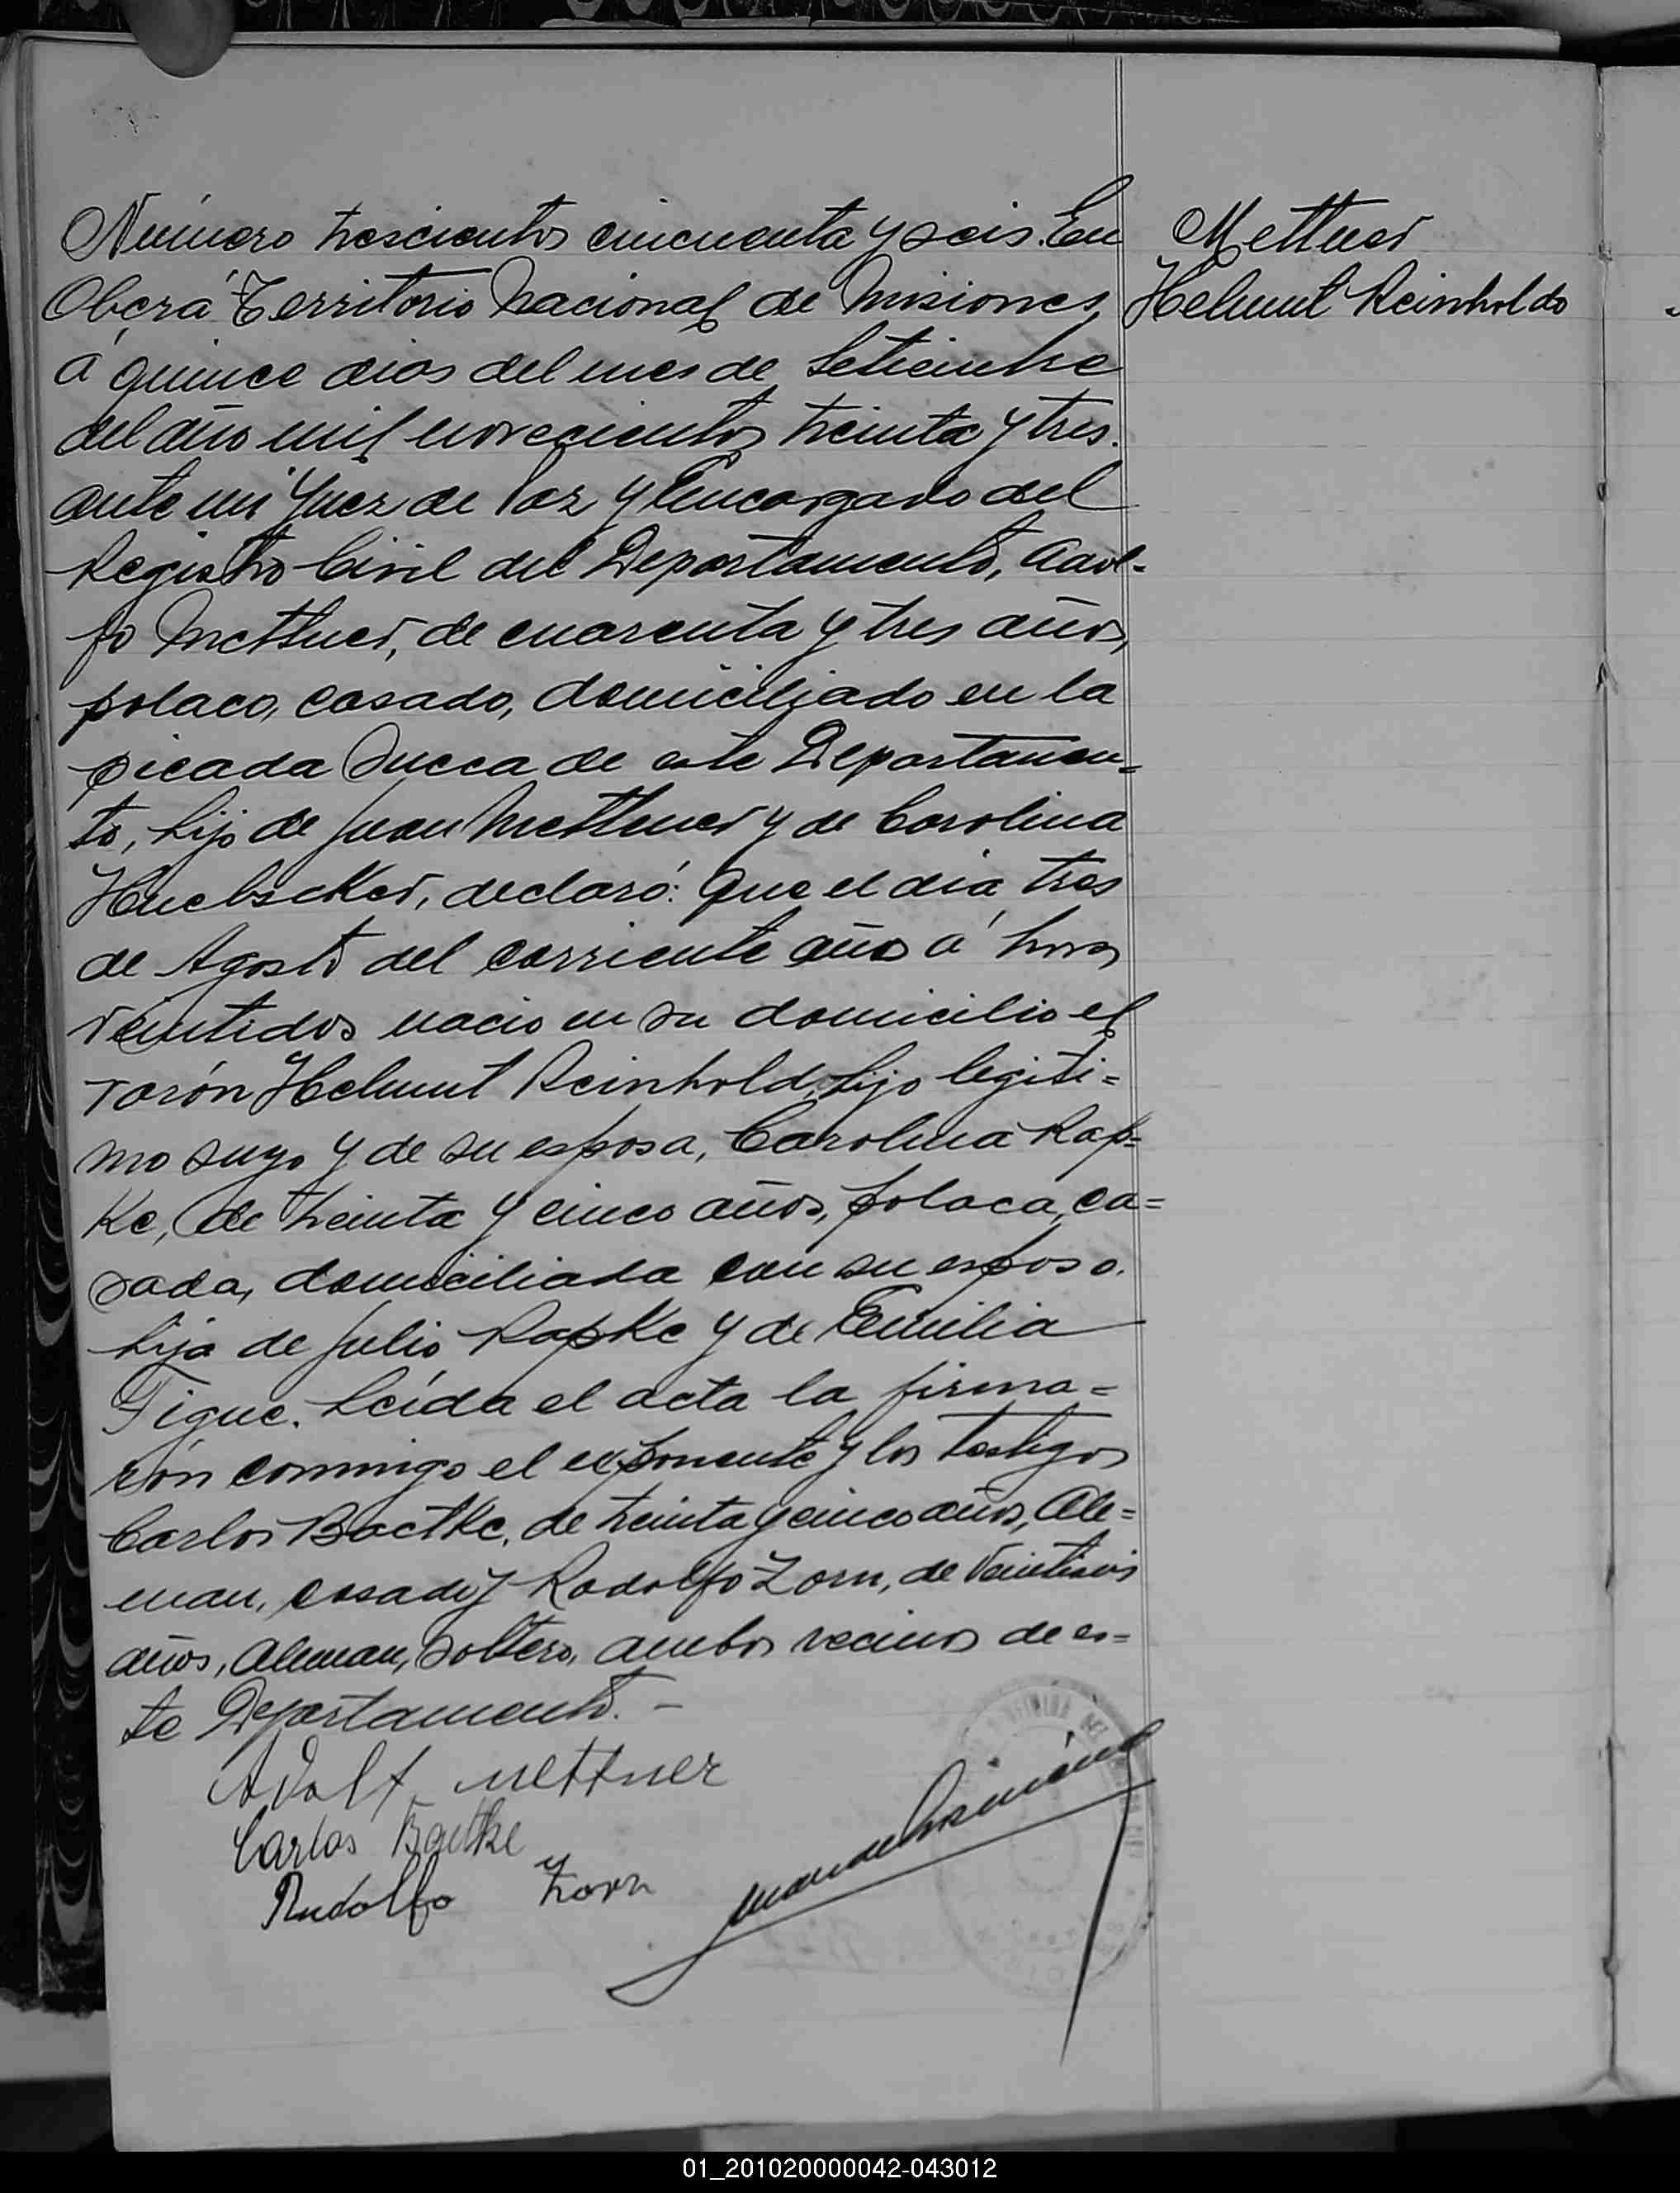 Número trescientos cincuenta y seis. En
Oberá Territorio Nacional de Misiones,
á quince dias del mes de Setiembre
del año mil novecientos treinta y tres.
ante mi Juez de Paz y Encargado del
Registro Civil del Departamento, Adol-
fo Mettner, de cuarenta y tres años,
polaco, casado, domiciliado en la
picada Sueca de este Departamen=
to, hijo de Juan Mettner y de Carolina
Huebscker, declaró: Que el dia tres
de Agosto del corriente año á horas
veintidos nacio en su domicilio el
varón Helmut Reinhold, hijo legiti=
mo suyo y de su esposa, Carolina Rap=
Ke, de treinta y cinco años, polaca, ca=
sada, domiciliada con su esposo.
hija de Julio RapKe y de Emilia
Tigue. Leída el acta la firma=
ron conmigo el exponente y los testigos
Carlos BaetKe, de treinta y cinco años, Ale=
man, casado y Rodolfo Zorn, de Veintiseis
años, Aleman, Soltero, ambos vecinos de es=
te Departamento. -
Adolf Mettner
Carlos Baetke
Rudolfo Zorn
Mettner
Helmut Reinholdo
01_201020000042-043012